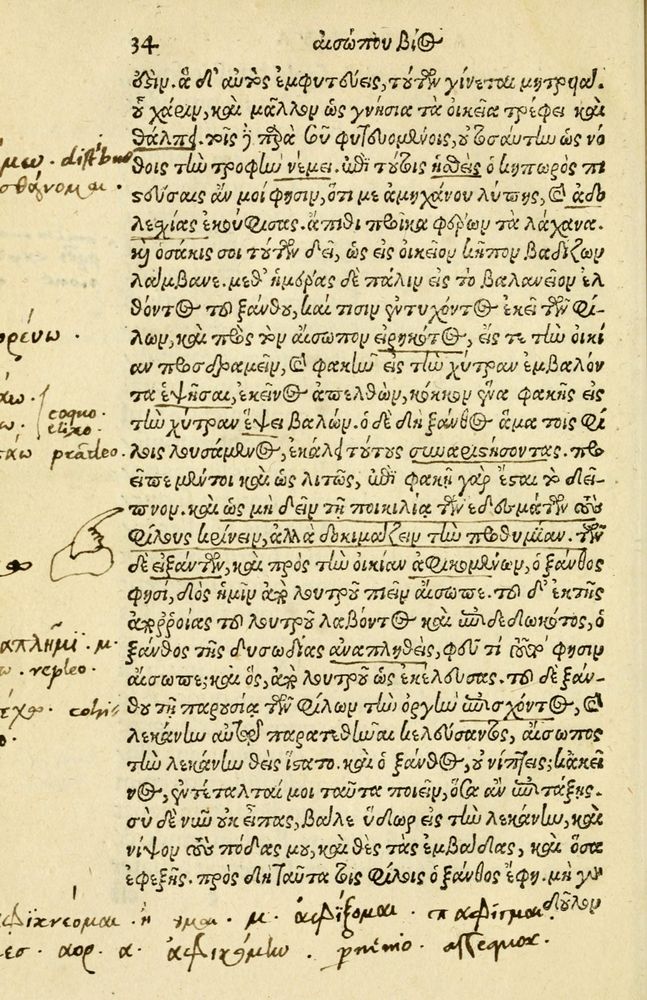 34 αἰσώπου βίος
ἃ δ' αὐτὸς ἐμφυτεύεις, τούτων γίνεται μητρυιά.
οὗ χάριν, καὶ μᾶλλον ὡς γνήσια τὰ οἰκεῖα τρέφει καὶ
θάλπει. τοῖς δὲ παρὰ σοῦ φυτευομένοις, ὡς νό
θοις τὴν τροφὴν νέμει. ἐπὶ τούτοις ἡσθεὶς ὁ κηπωρὸς πι
στεύσαις ἄν μοι φησιν, ὅτι με ἀμηχάνου λύπης, καὶ ἀδο
λεχίας ἐκούφισας. ἄπιθι προῖκα φέρων τὰ λάχανα.
κἂν ὁσάκις σοι τούτων δεῖ, ὡς εἰς οἰκεῖον κῆπον βαδίζων
λάμβανε. μεθ' ἡμέρας δὲ πάλιν εἰς τὸ βαλανεῖον ἐλ
θόντος τοῦ ξάνθου, καί τισιν ἐντυχόντος ἐκεῖ τῶν φί
λων, καὶ πρὸς τὸν αἴσωπον εἰρηκότος, εἴς τε τὴν οἰκί
αν προσδραμεῖν, καὶ φακὴν εἰς τὴν χύτραν ἐμβαλόν
τα ἑψῆσαι, ἐκεῖνος ἀπελθὼν, κόκκον ἕνα φακῆς εἰς
τὴν χύτραν ἕψει βαλών. ὁ δὲ δὴ ξάνθος ἅμα τοῖς φί
λοις λουσάμενος, ἐκάλει τούτους συναριστήσοντας. προ
εῖπε μέντοι καὶ ὡς λιτῶς, ἐπὶ φακῇ γὰρ ἔσται τὸ δεῖ-
πνον. καὶ ὡς μὴ δεῖν τῇ ποικιλίᾳ τῶν ἐδεσμάτων τοὺς
φίλους κρίνειν, ἀλλὰ δοκιμάζειν τὴν προθυμίαν. τῶν
δὲ εἰξάντων, καὶ πρὸς τὴν οἰκίαν ἀφικομένων, ὁ ξάνθος
φησὶ, δὸς ἡμῖν ἀπὸ λουτροῦ πιεῖν αἴσωπε. τοῦ δ' ἐκ τῆς
ἀπορροίας τοῦ λουτροῦ λαβόντος καὶ ἐπιδεδωκότος, ὁ
ξάνθος τῆς δυσωδίας ἀναπλησθεὶς, φεῦ τί τοῦτ' φησὶν
αἴσωπε; καὶ ὃς, ἀπὸ λουτροῦ ὡς ἐκέλευσας. τοῦ δὲ ξάν-
θου τῇ παρουσίᾳ τῶν φίλων τὴν ὀργὴν ἐπισχόντος, καὶ
λεκάνην αὐτῷ παρατεθῆναι κελεύσαντος, αἴσωπος
τὴν λεκάνην θεὶς ἵστατο. καὶ ὁ ξάνθος, οὐ νίπτεις; κἀκεῖ
νος, ἐντέταλταί μοι ταῦτα ποιεῖν, ὅσα ἂν ἐπιτάξῃς.
σὺ δὲ νῦν οὐκ εἶπας, βάλε ὕδωρ εἰς τὴν λεκάνην, καὶ
νίψον τοὺς πόδας μου, καὶ θὲς τὰς ἐμβάδας, καὶ ὅσα
ἐφεξῆς. πρὸς δὴ ταῦτα τοῖς φίλοις ὁ ξάνθος ἔφη. μὴ γὰρ
δοῦλον
coquo.
elixo.
prādeo.
repleo.